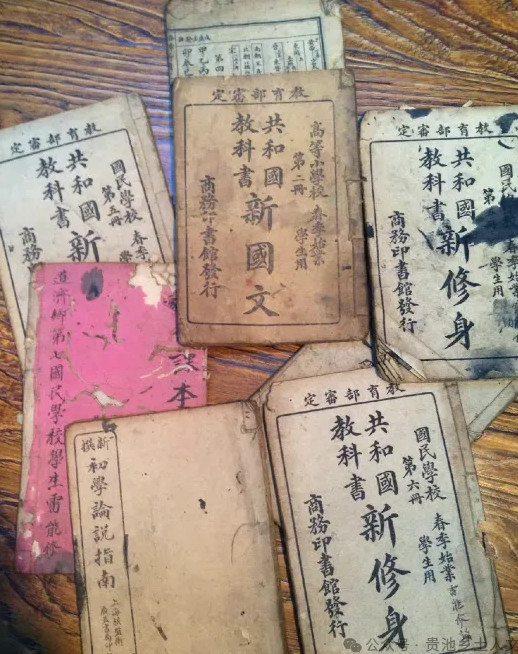 教育部審定
共和國
教科書
新國文
高等小學校
第二冊
春季始業
學生用
商務印書館發行
教育部審定
共和國
教科書
新
國民學校
第五冊
春季
商務
教育部審定
共和國
教科書
新修身
國民
第
春季始業
學生用
商務印書館發行
課本
道濟鄉第七國民學校學生雷能修
新撰
初學論說指南
教育部審定
共和國
教科書
新修身
國民學校
第六冊
春季始業
學生用
商務印書館發行
公众号·贵池乡土人文